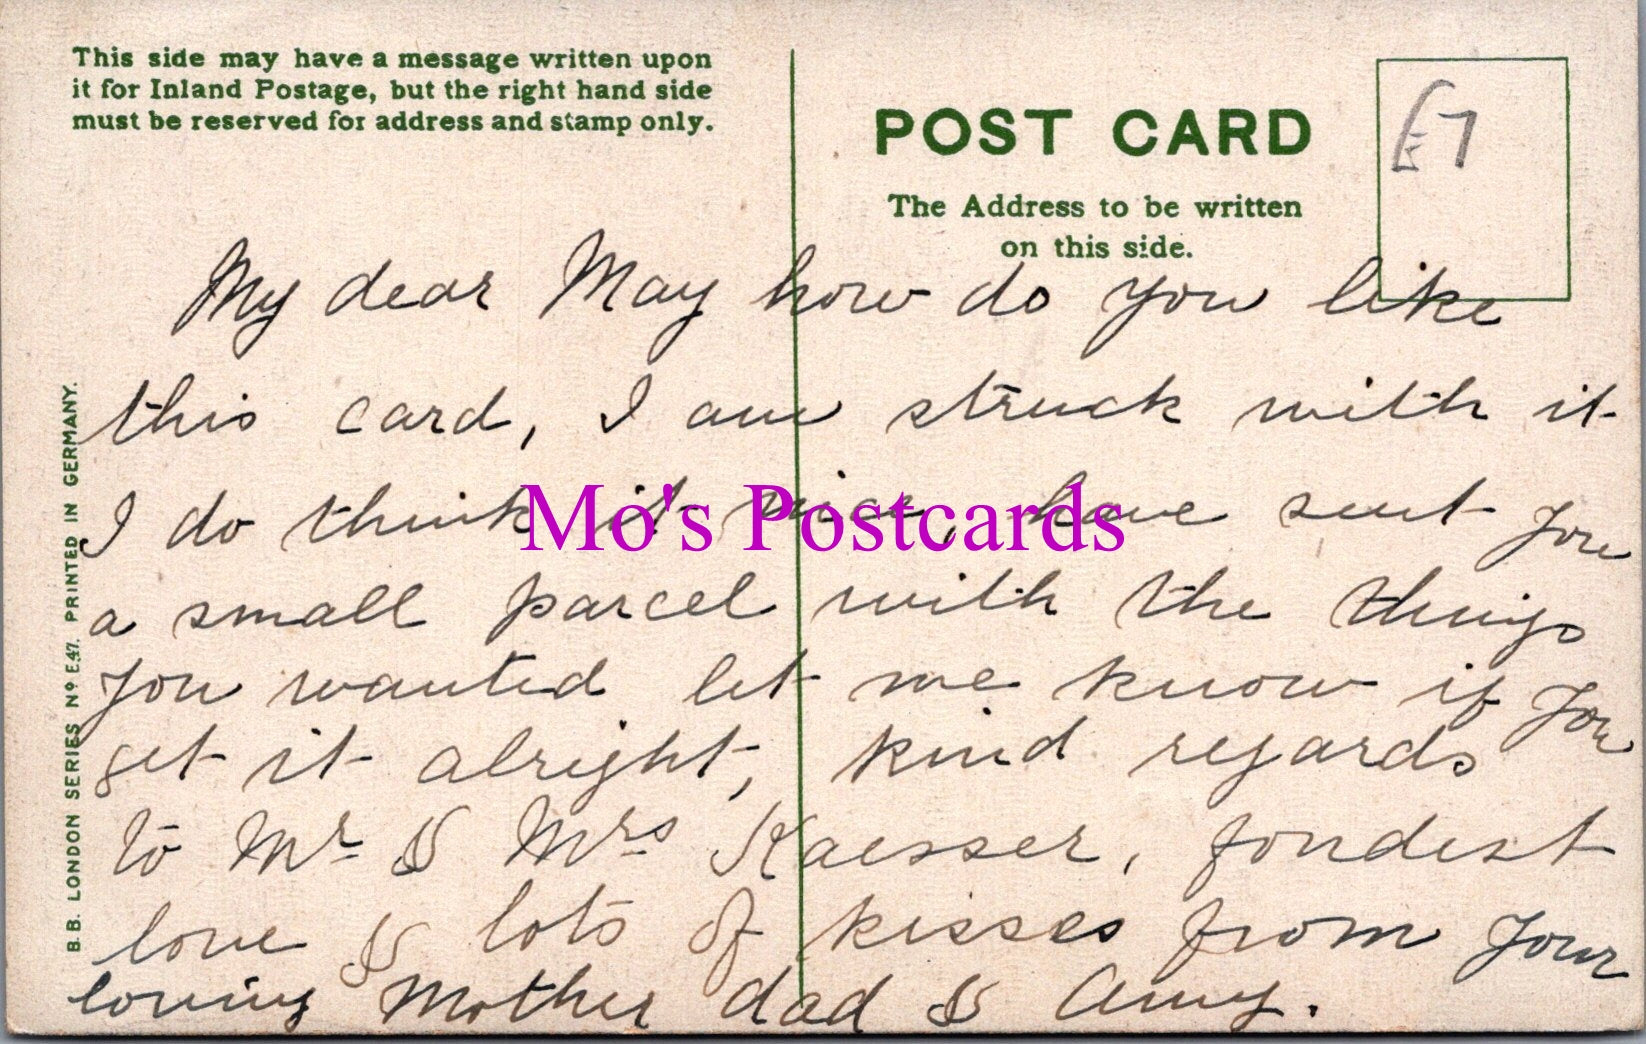 This side may have a message written upon
it for Inland Postage, but the right hand side
must be reserved for address and stamp only.
POST CARD
The Address to be written
on this side.
£7
My dear May how do you like
this card, I am struck with it
I do think it nice, have sent you
a small parcel with the things
you wanted let me know if you
get it alright, kind regards
to Mr & Mrs Kaesser, fondest
love & lots of kisses from your
loving Mother dad & Amy.
B.B. LONDON SERIES No E.47. PRINTED IN GERMANY.
Mo's Postcards